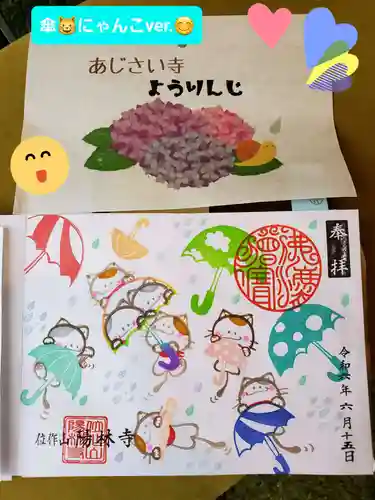 傘😺にゃんこver.😊
あじさい寺
ようりんじ
奉拝
令和六年六月十五日
位作山陽林寺